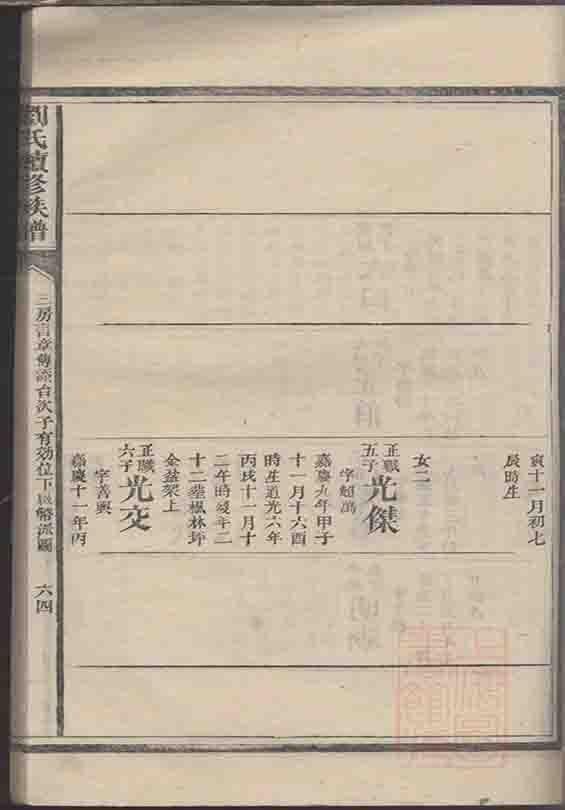 寅十一月初七
辰時生
女二
正職五子光傑
字超萬
嘉慶九年甲子
十一月十六酉
時生道光六年
丙戌十一月十
二午時歿年二
十三葬楓林坪
金盆架上
正職六子光交
字善興
嘉慶十一年丙
劉氏續修族譜
三房言章傳派台次子有効位下
六四